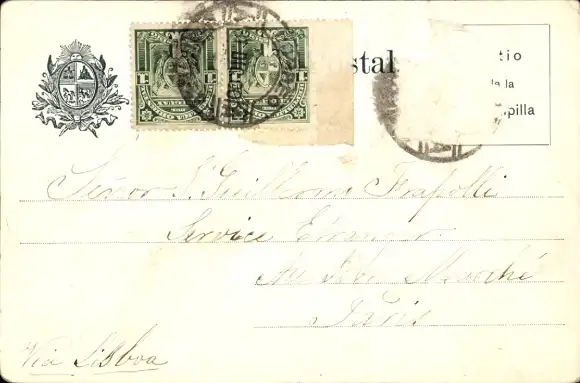 stal
tio
la
pilla
Señor J. Guillermo Frapolli
Service Etranger
Au Bon Marché
Paris
Via Lisboa